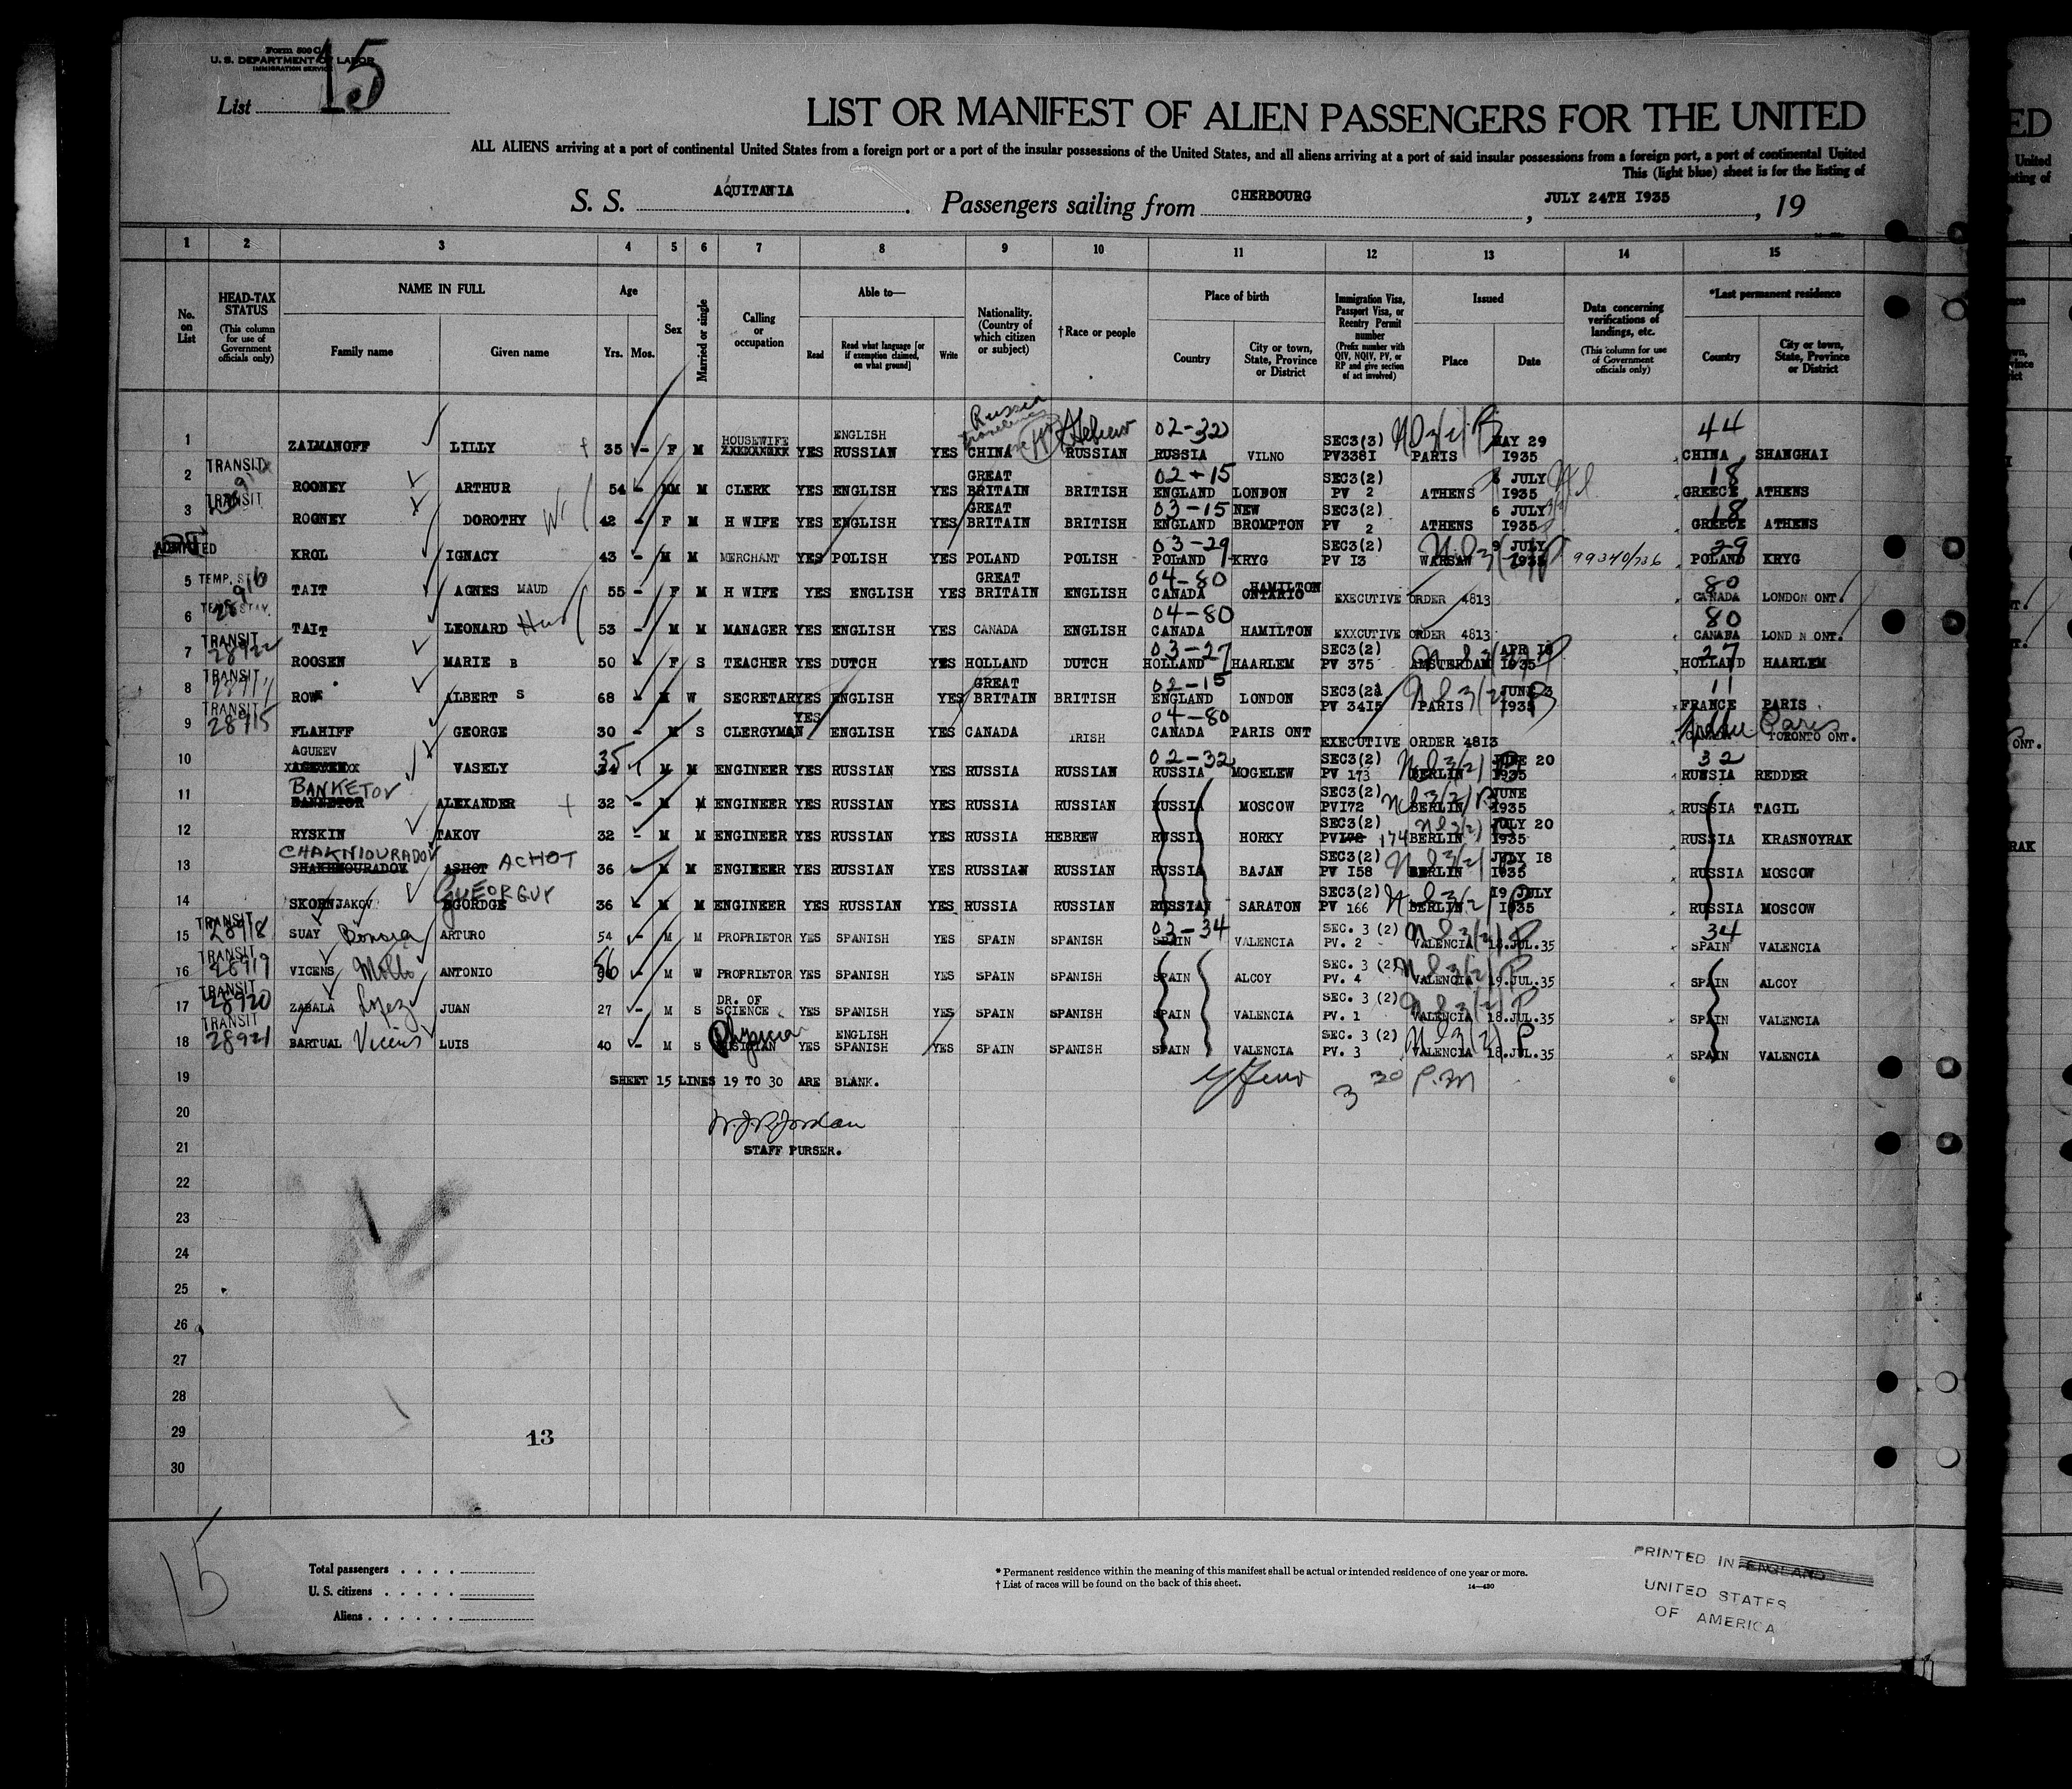 Form 500 C
U. S. DEPARTMENT OF LABOR
IMMIGRATION SERVICE
List 15
LIST OR MANIFEST OF ALIEN PASSENGERS FOR THE UNITED
ALL ALIENS arriving at a port of continental United States from a foreign port or a port of the insular possessions of the United States, and all aliens arriving at a port of said insular possessions from a foreign port, a port of continental United
This (light blue) sheet is for the listing of
S. S. AQUITANIA. Passengers sailing from CHERBOURG, JULY 24TH 1935, 19
1 2 3 4 5 6 7 8 9 10 11 12 13 14 15
No. on List
HEAD-TAX STATUS (This column for use of Government officials only)
NAME IN FULL Family name Given name
Age Yrs. Mos.
Sex
Married or single
Calling or occupation
Able to— Read Read what language [or if exemption claimed, on what ground] Write
Nationality. (Country of which citizen or subject)
†Race or people
Place of birth Country City or town, State, Province or District
Immigration Visa, Passport Visa, or Reentry Permit number (Prefix number with QIV, NQIV, PV, or RP and give section of act involved)
Issued Place Date
Data concerning verifications of landings, etc. (This column for use of Government officials only)
*Last permanent residence Country City or town, State, Province or District
1 ZALMANOFF LILLY 35 - F M HOUSEWIFE YES ENGLISH RUSSIAN YES CHINA Russia Hebrew RUSSIAN 02-32 RUSSIA VILNO SEC3(3) PV3381 PARIS MAY 29 1935 44 CHINA SHANGHAI
2 TRANSIT ROONEY ARTHUR 54 - M M CLERK YES ENGLISH YES GREAT BRITAIN BRITISH 02-15 ENGLAND LONDON SEC3(2) PV 2 ATHENS JULY 1935 18 GREECE ATHENS
3 TRANSIT ROONEY DOROTHY 42 - F M H WIFE YES ENGLISH YES GREAT BRITAIN BRITISH 03-15 ENGLAND NEW BROMPTON SEC3(2) PV 2 ATHENS 6 JULY 1935 18 GREECE ATHENS
ADMITTED KROL IGNACY 43 - M M MERCHANT YES POLISH YES POLAND POLISH 03-29 POLAND KRYG SEC3(2) PV 13 WARSAW 9 JULY 1935 99340/736 29 POLAND KRYG
5 TAIT AGNES MAUD 55 - F M H WIFE YES ENGLISH YES GREAT BRITAIN ENGLISH 04-80 CANADA HAMILTON ONTARIO EXECUTIVE ORDER 4813 80 CANADA LONDON ONT.
6 TAIT LEONARD 53 - M M MANAGER YES ENGLISH YES CANADA ENGLISH 04-80 CANADA HAMILTON EXXCUTIVE ORDER 4813 80 CANADA LOND N ONT.
7 TRANSIT 28922 ROOSEN MARIE B 50 - F S TEACHER YES DUTCH YES HOLLAND DUTCH 03-27 HOLLAND HAARLEM SEC3(2) PV 375 AMSTERDAM APR 1935 27 HOLLAND HAARLEM
8 TRANSIT ROWE ALBERT S 68 - M W SECRETARYES ENGLISH YES GREAT BRITAIN BRITISH 02-15 ENGLAND LONDON PV 3415 PARIS JUNE 1935 11 FRANCE PARIS
9 TRANSIT 28915 FLAHIFF GEORGE 30 - M S CLERGYMAN YES ENGLISH YES CANADA IRISH 04-80 CANADA PARIS ONT EXECUTIVE ORDER 4813 Paris TORONTO ONT.
10 AGUEEV VASELY 35 M M ENGINEER YES RUSSIAN YES RUSSIA RUSSIAN 02-32 RUSSIA MOGELEW SEC3(2) PV 173 BERLIN 20 1935 32 RUSSIA REDDER
11 BANKETOV ALEXANDER 32 - M M ENGINEER YES RUSSIAN YES RUSSIA RUSSIAN RUSSIA MOSCOW SEC3(2) PV172 BERLIN JUNE 1935 RUSSIA TAGIL
12 RYSKIN TAKOV 32 - M M ENGINEER YES RUSSIAN YES RUSSIA HEBREW RUSSIA HORKY SEC3(2) 174 BERLIN JULY 20 1935 RUSSIA KRASNOYRAK
13 CHAKNIOURADOV ASHOT ACHOT 36 - M M ENGINEER YES RUSSIAN YES RUSSIAN RUSSIAN RUSSIA BAJAN SEC3(2) PV 158 BERLIN JULY 18 1935 RUSSIA MOSCOW
14 SKORNJAKOV GUEORGUY 36 - M M ENGINEER YES RUSSIAN YES RUSSIA RUSSIAN RUSSIAN SARATON SEC3(2) PV 166 BERLIN 19 JULY 1935 RUSSIA MOSCOW
15 TRANSIT 28918 SUAY ARTURO 54 - M M PROPRIETOR YES SPANISH YES SPAIN SPANISH 03-34 SPAIN VALENCIA SEC. 3 (2) PV. 2 VALENCIA 18.JUL.35 34 SPAIN VALENCIA
16 TRANSIT 28919 VICENS ANTONIO 56 - M W PROPRIETOR YES SPANISH YES SPAIN SPANISH SPAIN ALCOY SEC. 3 (2) PV. 4 VALENCIA 19.JUL.35 SPAIN ALCOY
17 TRANSIT 28920 ZABALA Lopez JUAN 27 - M S DR. OF SCIENCE YES SPANISH YES SPAIN SPANISH SPAIN VALENCIA SEC. 3 (2) PV. 1 VALENCIA 18.JUL.35 SPAIN VALENCIA
18 TRANSIT 28921 BARTUAL Vicens LUIS 40 - M S Physician YES ENGLISH SPANISH YES SPAIN SPANISH SPAIN VALENCIA SEC. 3 (2) PV. 3 VALENCIA 18.JUL.35 SPAIN VALENCIA
19 SHEET 15 LINES 19 TO 30 ARE BLANK. 3 30 P.M
20 W.J.R.Jordan
21 STAFF PURSER.
22
23
24
25
26
27
28
29 13
30
15
Total passengers . . . .
U. S. citizens . . . . .
Aliens . . . . . .
* Permanent residence within the meaning of this manifest shall be actual or intended residence of one year or more.
† List of races will be found on the back of this sheet.
14—430
PRINTED IN ENGLAND
UNITED STATES
OF AMERICA